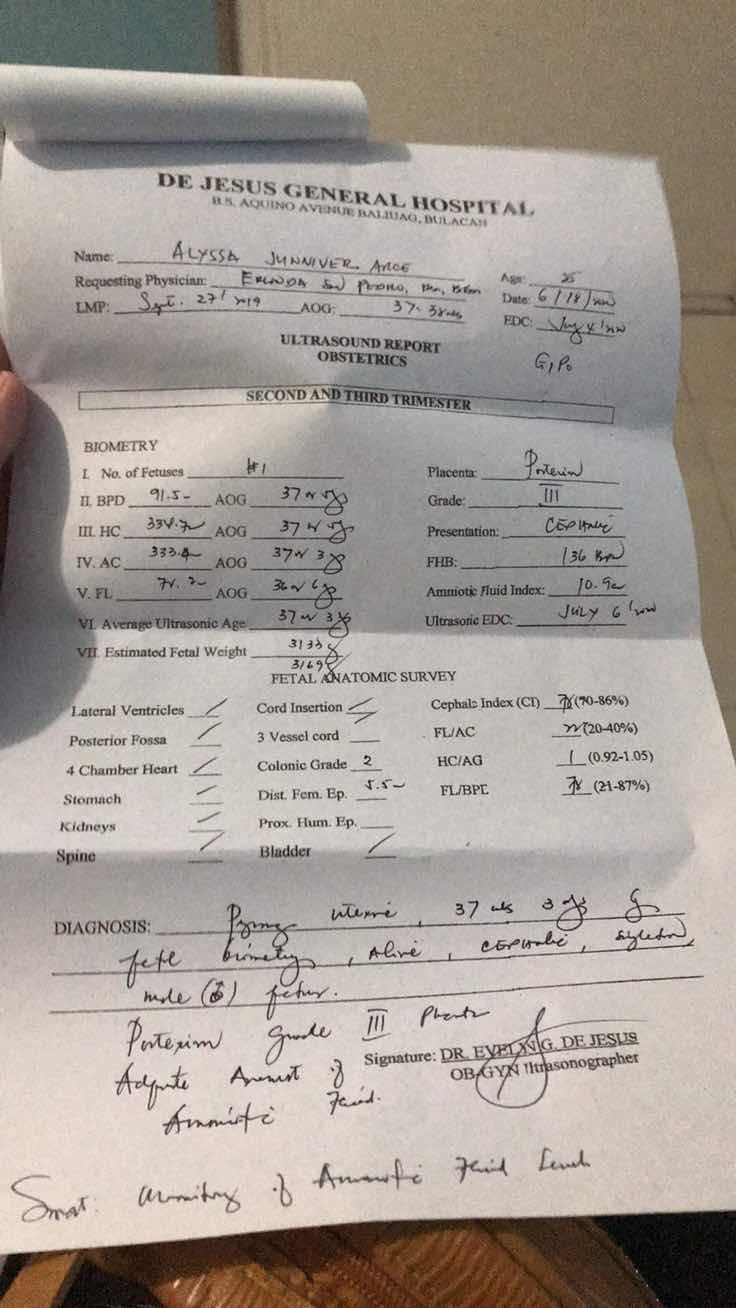 DE JESUS GENERAL HOSPITAL
B.S. AQUINO AVENUE BALIUAG, BULACAN
Name: ALYSSA JUNNIVER ARCE Age: 25
Requesting Physician: Date: 6/18/
LMP: Sept. 27' 2019 AOG: 37-38 wks EDC: July 4'
G1P0
ULTRASOUND REPORT
OBSTETRICS
SECOND AND THIRD TRIMESTER
BIOMETRY
I. No. of Fetuses #1 Placenta: Posterior
II. BPD 91.5 AOG 37 w 5 Grade: III
III. HC AOG 37 w 5 Presentation: CEPHALIC
IV. AC AOG 37 w 3 FHB: 136 BPM
V. FL AOG 36 w 6 Amniotic Fluid Index: 10.9
VI. Average Ultrasonic Age 37 w 3 Ultrasonic EDC: JULY 6'
VII. Estimated Fetal Weight 3133 g
3169 g
FETAL ANATOMIC SURVEY
Lateral Ventricles Cord Insertion Cephalic Index (CI) 78 (70-86%)
Posterior Fossa 3 Vessel cord FL/AC 22 (20-40%)
4 Chamber Heart Colonic Grade 2 HC/AG 1 (0.92-1.05)
Stomach Dist. Fem. Ep. 5.5 FL/BPD 78 (21-87%)
Kidneys Prox. Hum. Ep.
Spine Bladder
DIAGNOSIS: uterine, 37 wks 3 by
fetal biometry, Alive, CEPHALIC, singleton,
male (♂) fetus.
Posterior grade III Placenta
Adequate Amount of
Amniotic Fluid.
Signature: DR. EVELYN G. DE JESUS
OB-GYN Ultrasonographer
monitoring of Amniotic Fluid Level